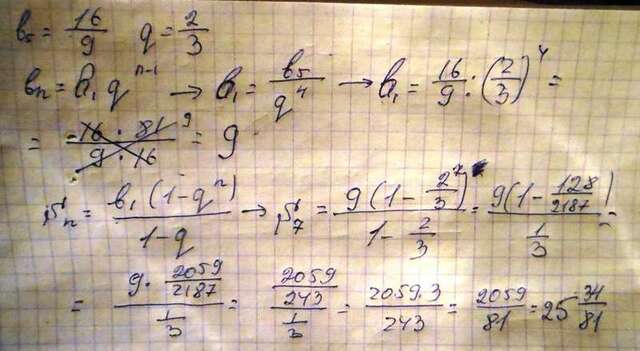 b₅ = 16/9 q = 2/3
bₙ = b₁ qⁿ⁻¹ → b₁ = b₅/q⁴ → b₁ = 16/9 : (2/3)⁴ =
= 16 · 81 9/9 · 16 = 9
Sₙ = b₁(1-qⁿ)/1-q → S₇ = 9(1- 2/3)⁷/1- 2/3 = 9(1- 128/2187)/1/3 =
= 9 · 2059/2187/1/3 = 2059/243/1/3 = 2059·3/243 = 2059/81 = 25 34/81